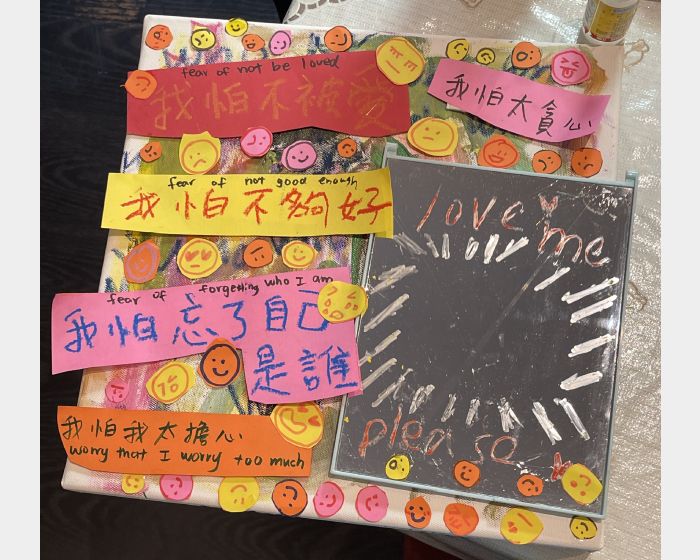 fear of not be loved
我怕不被愛
我怕太貪心
fear of not good enough
我怕不夠好
fear of forgetting who I am
我怕忘了自己
是誰
我怕我太擔心
worry that I worry too much
love
me
please